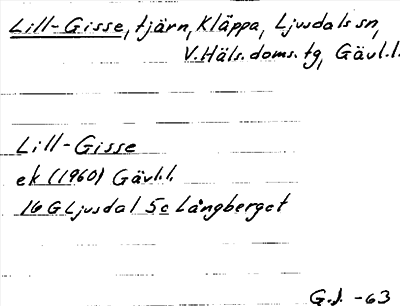 Lill-Gisse, tjärn, Kläppa, Ljusdals sn,
V.Häls. doms. tg, Gävl.l.
Lill-Gisse
ek (1960) Gävl.l.
16 G Ljusdal 5c Långberget
G.J. -63